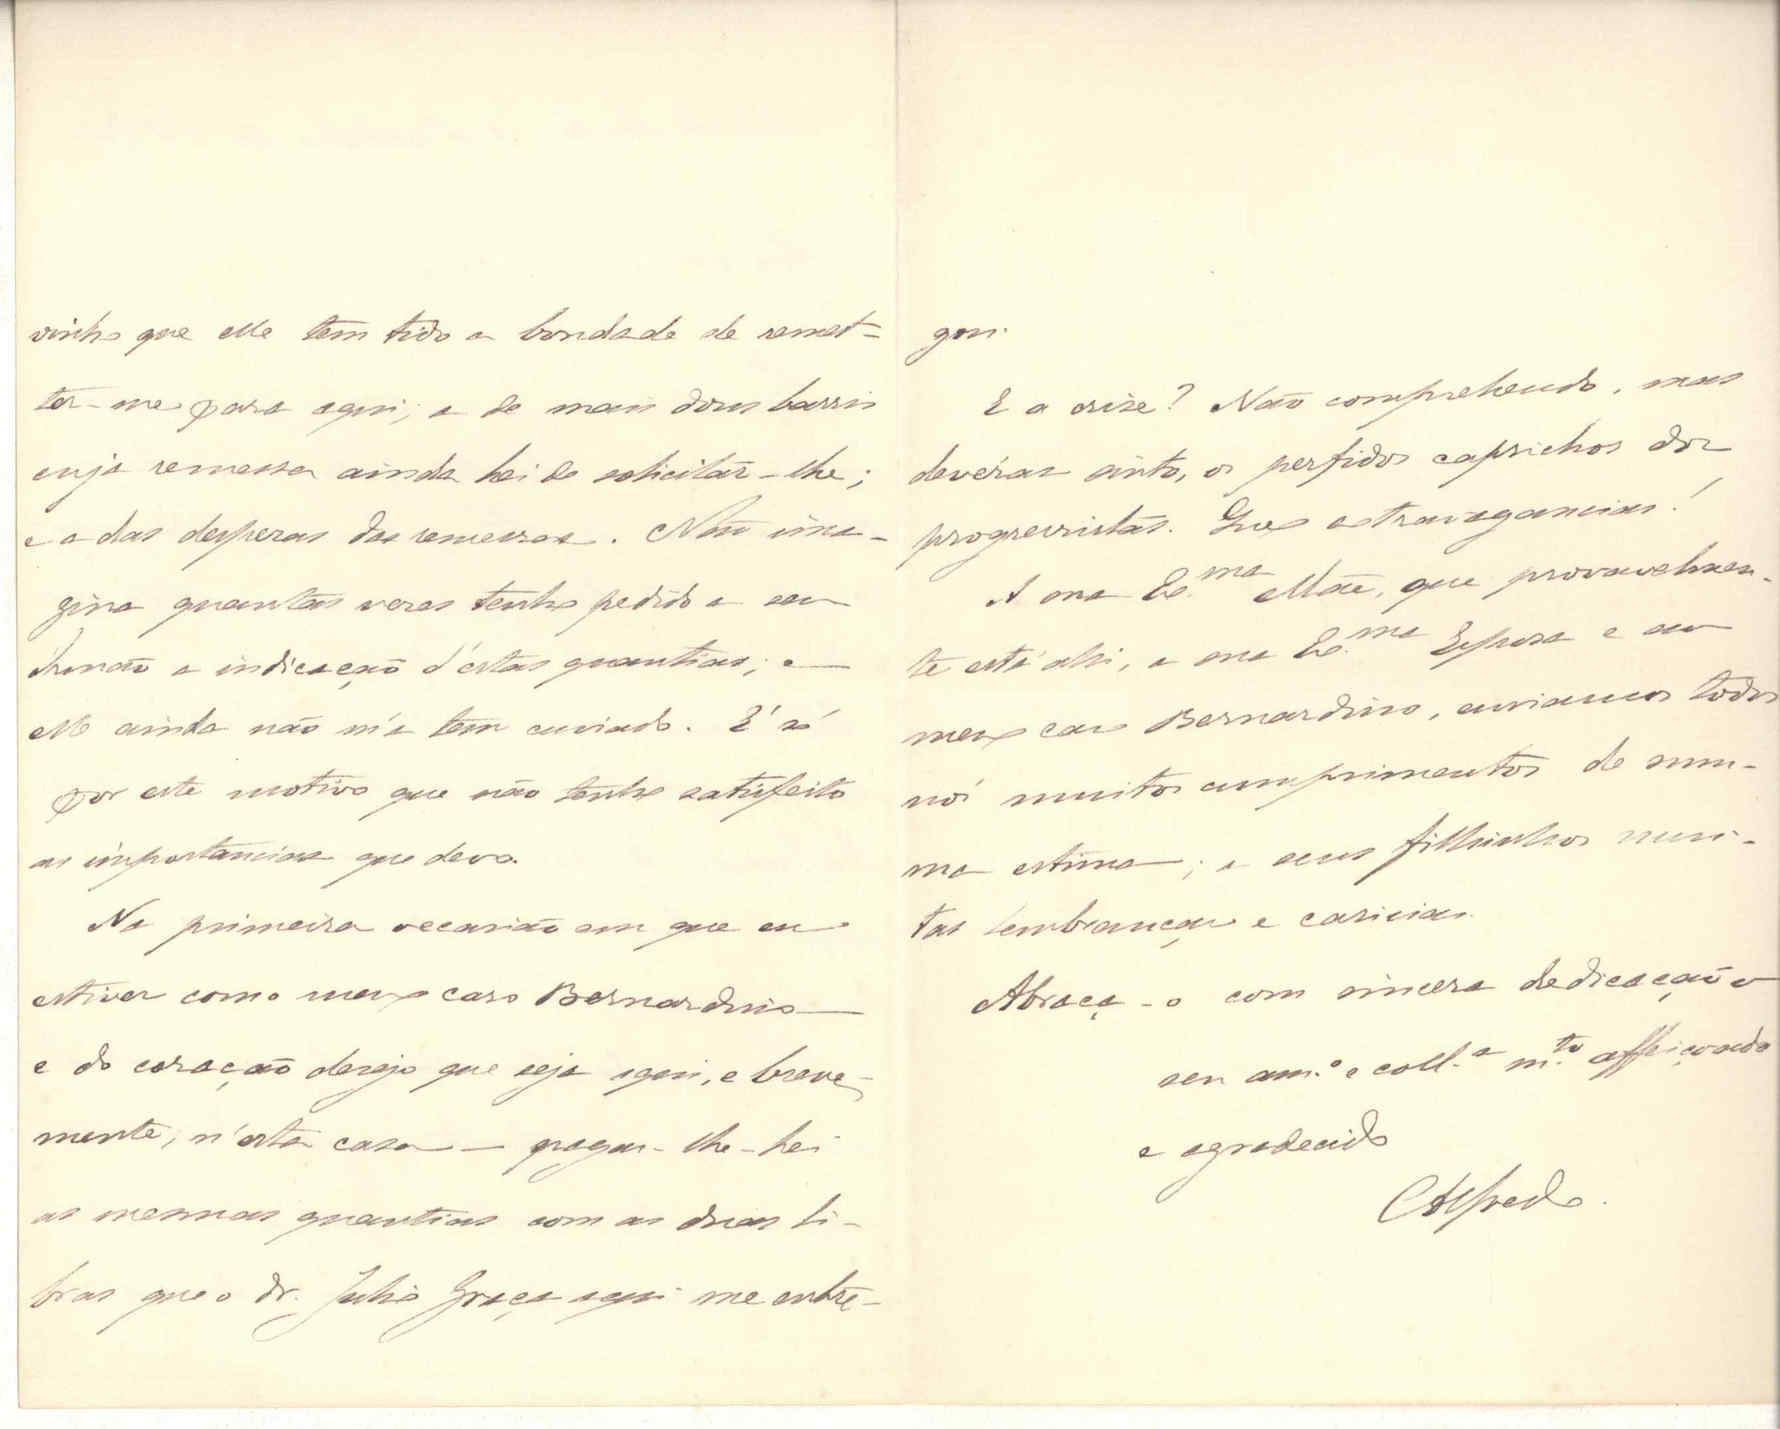 vinho que elle tem tido a bondade de remet-
ter-me para aqui; a de mais dous barris
cuja remessa ainda hei de solicitar-lhe;
e a das despezas das remessas. Não ima-
gina quantas vezes tenho pedido a seu
Irmão a indicação d'estas quantias; e
elle ainda não m'a tem enviado. E' só
por este motivo que não tenho satisfeito
as importancias que devo.
Na primeira occasião em que eu
estiver com o meu caro Bernardino —
e do coração desejo que seja aqui, e breve-
mente, n'esta casa — pagar-lhe-hei
as mesmas quantias com as duas li-
bras que o dr. Julio Graça aqui me entre-
gou.
E a crise? Não comprehendo, mas
devéras sinto, os perfidos caprichos dos
progressistas. Que extravagancias!
A sua Ex.ma Mãe, que provavelmen-
te está ahi, a sua Ex.ma Esposa e ao
meu caro Bernardino, enviamos todos
nós muitos cumprimentos de sum-
ma estima; a seus filhinhos mui-
tas lembranças e caricias.
Abraça-o com sincera dedicação o
seu am.o e coll.a m.to affeiçoado
e agradecido
Alfredo.